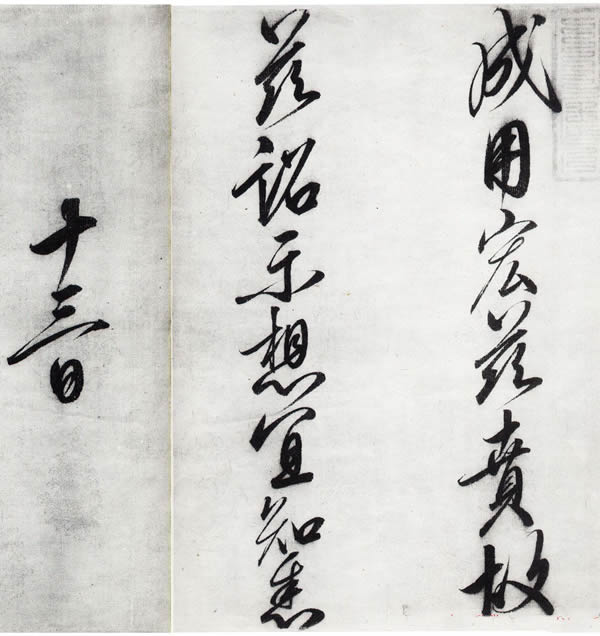 成用宏兹賁故
兹詔示想宜知悉
十三日